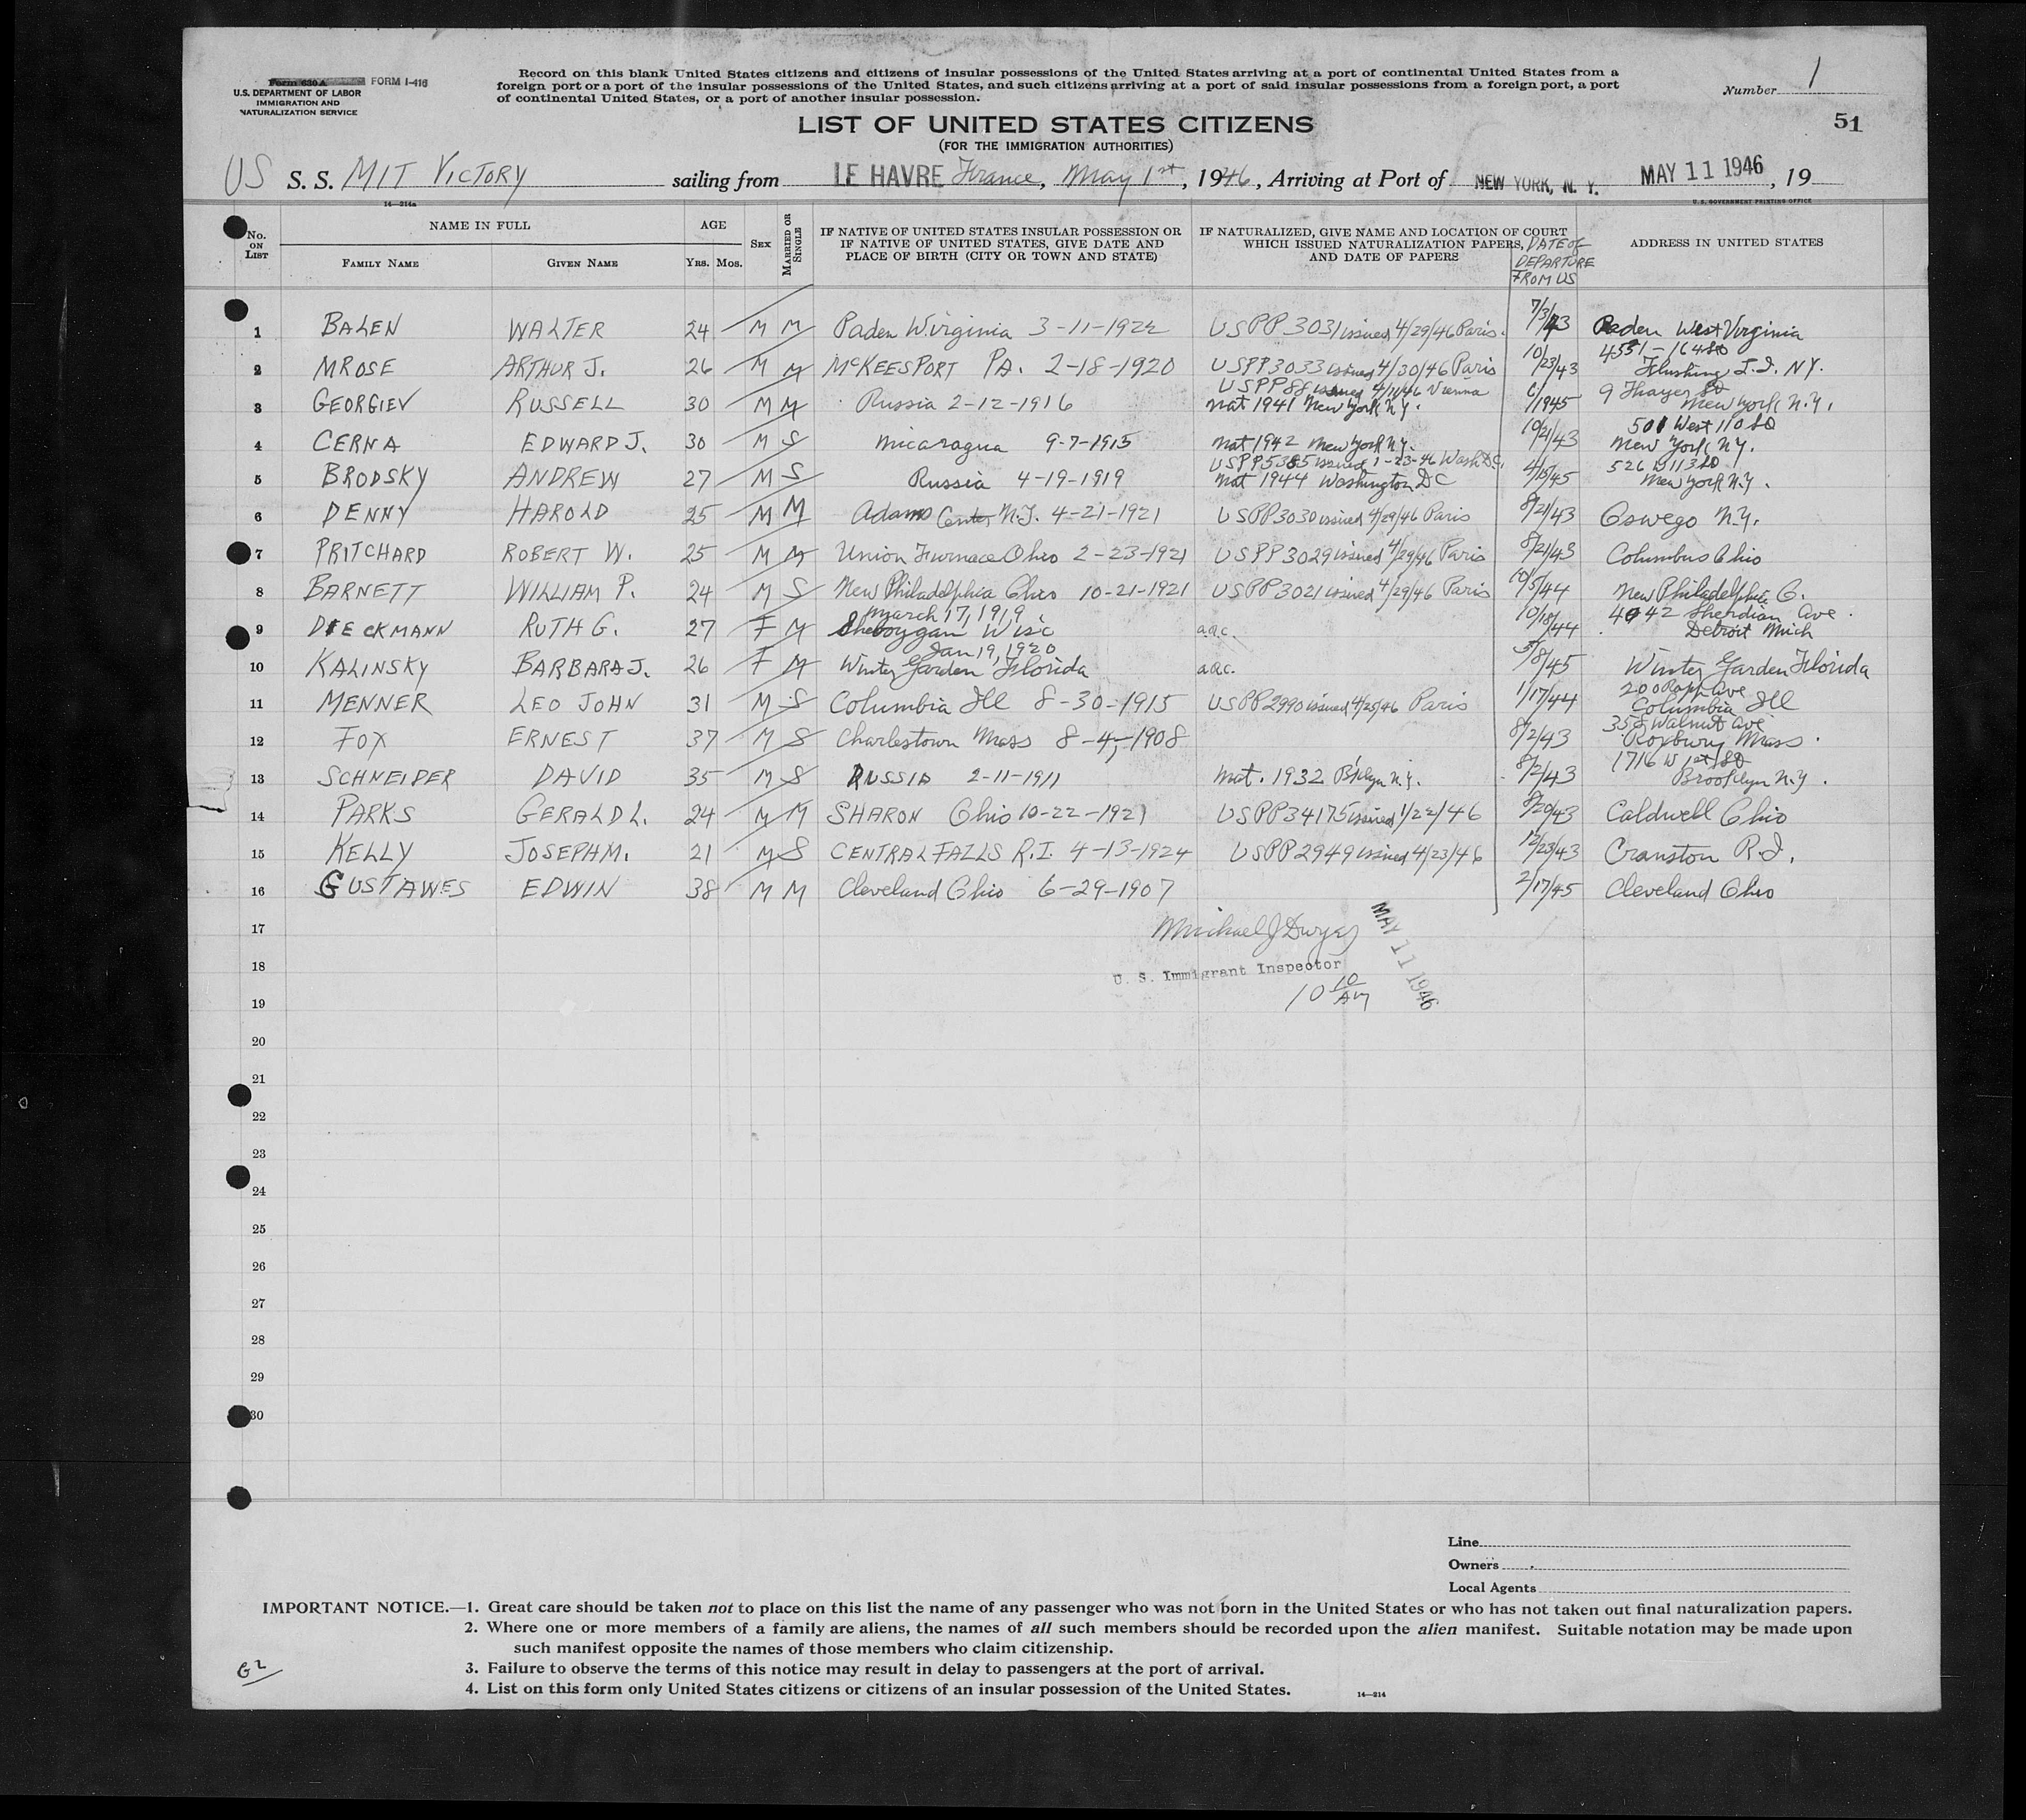 Form 630 A FORM I-416
U.S. DEPARTMENT OF LABOR
IMMIGRATION AND
NATURALIZATION SERVICE
Record on this blank United States citizens and citizens of insular possessions of the United States arriving at a port of continental United States from a
foreign port or a port of the insular possessions of the United States, and such citizens arriving at a port of said insular possessions from a foreign port, a port
of continental United States, or a port of another insular possession.
Number 1
51
LIST OF UNITED STATES CITIZENS
(FOR THE IMMIGRATION AUTHORITIES)
US S. S. MIT VICTORY sailing from LE HAVRE France, May 1st, 1946, Arriving at Port of NEW YORK, N. Y. MAY 11 1946, 19
14—214a
U. S. GOVERNMENT PRINTING OFFICE
No. ON LIST
NAME IN FULL
FAMILY NAME GIVEN NAME
AGE
YRS. MOS.
SEX
MARRIED OR SINGLE
IF NATIVE OF UNITED STATES INSULAR POSSESSION OR
IF NATIVE OF UNITED STATES, GIVE DATE AND
PLACE OF BIRTH (CITY OR TOWN AND STATE)
IF NATURALIZED, GIVE NAME AND LOCATION OF COURT
WHICH ISSUED NATURALIZATION PAPERS,
AND DATE OF PAPERS
DATE OF
DEPARTURE
FROM US
ADDRESS IN UNITED STATES
1 BALEN WALTER 24 M M Paden W.irginia 3-11-1922 USPP 3031 issued 4/29/46 Paris. 7/3/43 Paden West Virginia
2 MROSE ARTHUR J. 26 M M McKEESPORT PA. 2-18-1920 USPP 3033 issued 4/30/46 Paris 10/23/43 4531-164 St
Flushing L.I. NY.
3 GEORGIEV RUSSELL 30 M M Russia 2-12-1916 USPP 88 issued 4/11/46 Vienna
Nat 1941 New York N.Y. 6/1945 9 Thayer St
New York N.Y.
4 CERNA EDWARD J. 30 M S Nicaragua 9-7-1915 Nat 1942 New York N.Y. 10/21/43 501 West 110 St
New York N.Y.
5 BRODSKY ANDREW 27 M S Russia 4-19-1919 USPP 5385 issued 1-23-46 Wash D.C.
Nat 1944 Washington DC 4/15/45 526 W 113 St
New York N.Y.
6 DENNY HAROLD 25 M M Adams Center N.Y. 4-21-1921 USPP 3030 issued 4/29/46 Paris 8/21/43 Oswego N.Y.
7 PRITCHARD ROBERT W. 25 M M Union Furnace Ohio 2-23-1921 USPP 3029 issued 4/29/46 Paris 8/21/43 Columbus Ohio
8 BARNETT WILLIAM P. 24 M S New Philadelphia Ohio 10-21-1921 USPP 3021 issued 4/29/46 Paris 10/5/44 New Philadelphia O.
9 DIECKMANN RUTH G. 27 F M March 17, 1919
Sheboygan Wisc a.a.c. 10/18/44 4042 Sheridian Ave.
Detroit Mich
10 KALINSKY BARBARA J. 26 F M Jan 19, 1920
Winter Garden Florida a.a.c. 5/8/45 Winter Garden Florida
11 MENNER LEO JOHN 31 M S Columbia Ill 8-30-1915 USPP 2990 issued 4/25/46 Paris 1/17/44 200 Rapp Ave
Columbia Ill
12 FOX ERNEST 37 M S Charlestown Mass 8-4-1908 8/2/43 358 Walnut Ave
Roxbury Mass.
13 SCHNEIDER DAVID 35 M S RUSSIA 2-11-1911 Nat. 1932 B'klyn N.Y. 8/2/43 1716 W 1st St
Brooklyn N.Y.
14 PARKS GERALD L. 24 M M SHARON Ohio 10-22-1921 USPP 34175 issued 1/22/46 8/20/43 Caldwell Ohio
15 KELLY JOSEPH M. 21 M S CENTRAL FALLS R.I. 4-13-1924 USPP 2949 issued 4/23/46 12/23/43 Cranston R.I.
16 GUSTAWES EDWIN 38 M M Cleveland Ohio 6-29-1907 2/17/45 Cleveland Ohio
17 Michael J Dwyer MAY 11 1946
18 U. S. Immigrant Inspector
19 10 10 AM
20
21
22
23
24
25
26
27
28
29
30
Line
Owners
Local Agents
IMPORTANT NOTICE.—1. Great care should be taken not to place on this list the name of any passenger who was not born in the United States or who has not taken out final naturalization papers.
2. Where one or more members of a family are aliens, the names of all such members should be recorded upon the alien manifest. Suitable notation may be made upon
such manifest opposite the names of those members who claim citizenship.
3. Failure to observe the terms of this notice may result in delay to passengers at the port of arrival.
4. List on this form only United States citizens or citizens of an insular possession of the United States.
14—214
G2